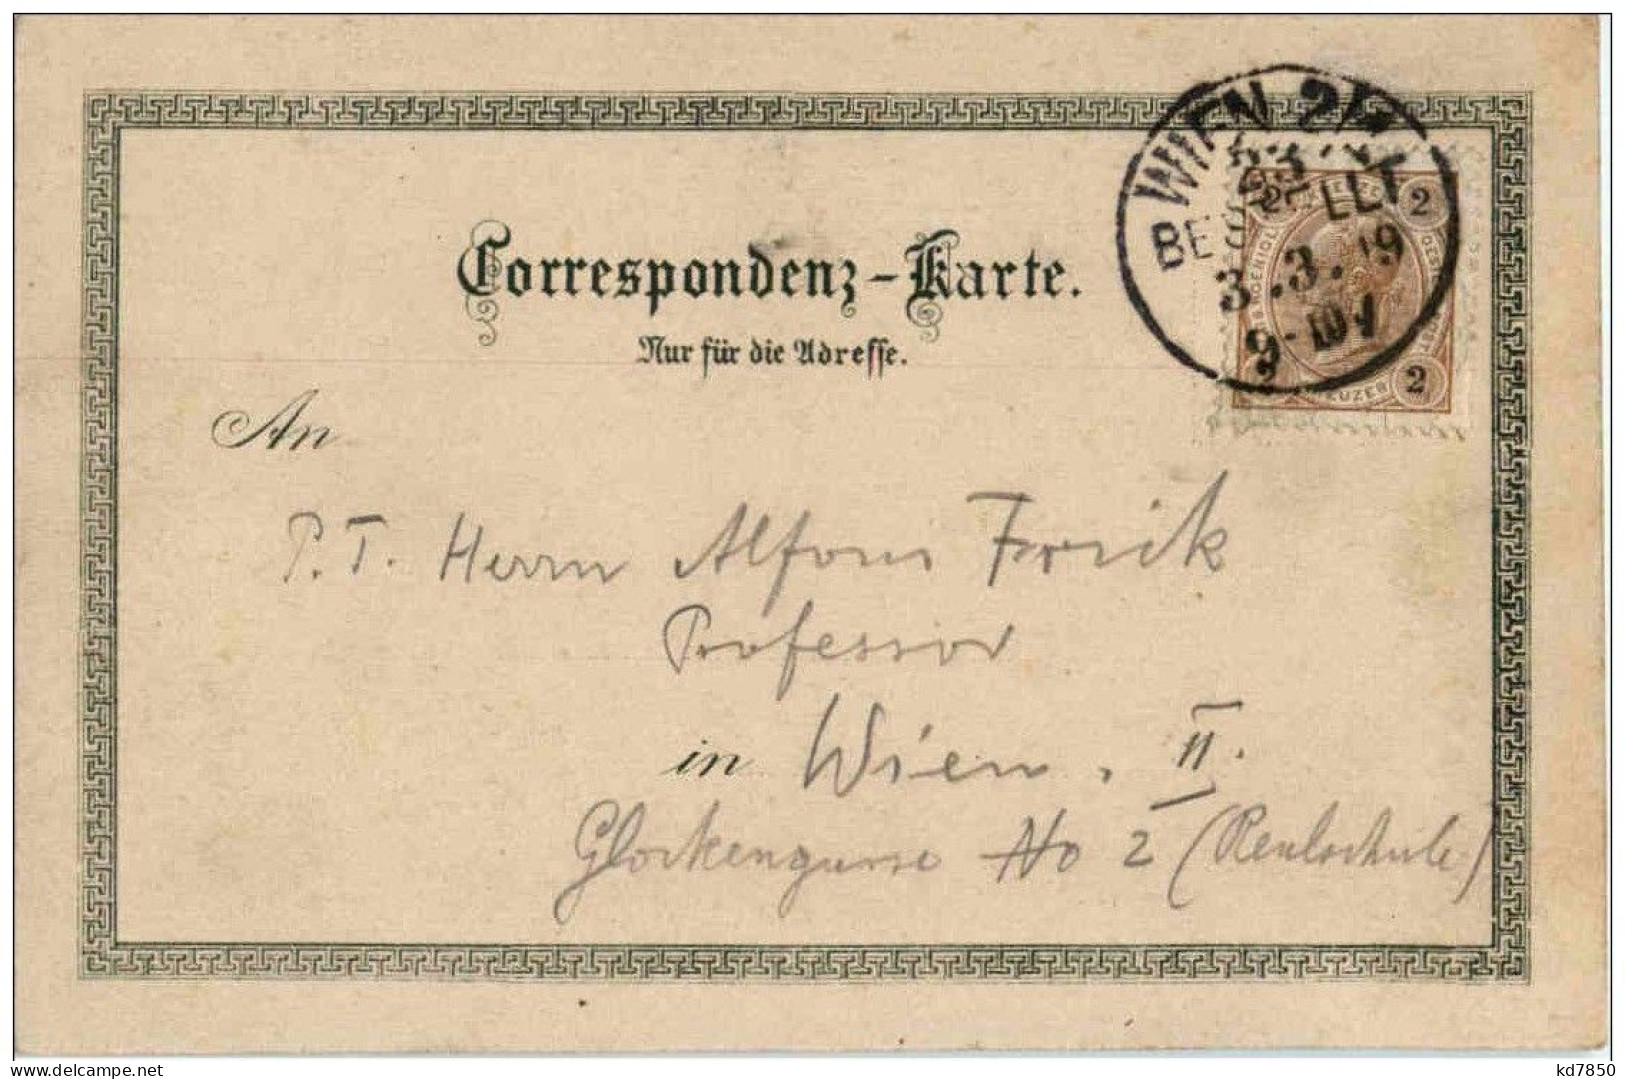 WIEN 2/
BESTELLT
3.3.9
9-10V
2 2
2 2
Correspondenz-Karte.
Nur für die Adresse.
An
P.T. Herrn Alfons Frick
Professor
in Wien. II.
Glockengasse No 2 (Realschule)
delcampe.net
kd7850